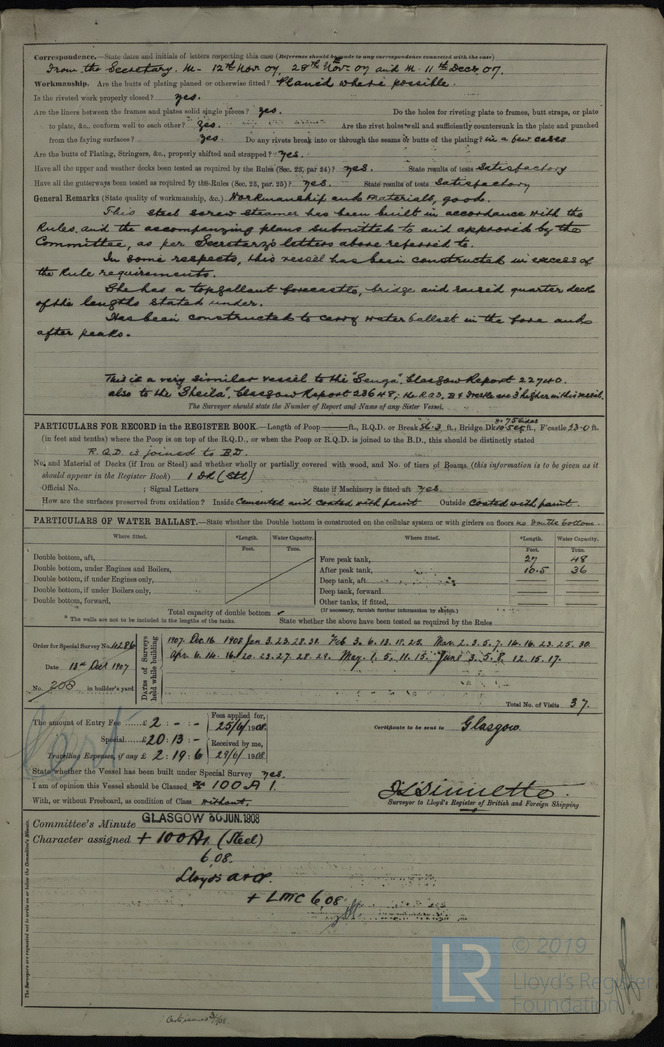 Correspondence.—State dates and initials of letters respecting this case (Reference should be made to any correspondence connected with the case)
From the Secretary. M- 12th Nov. 07, 28th Nov. 07 and M. 11th Decr. 07.
Workmanship. Are the butts of plating planed or otherwise fitted? Planed where possible.
Is the riveted work properly closed? yes.
Are the liners between the frames and plates solid single pieces? yes. Do the holes for riveting plate to frames, butt straps, or plate
to plate, &c., conform well to each other? Yes. Are the rivet holes well and sufficiently countersunk in the plate and punched
from the faying surfaces? yes. Do any rivets break into or through the seams or butts of the plating? in a few cases
Are the butts of Plating, Stringers, &c., properly shifted and strapped? yes.
Have all the upper and weather decks been tested as required by the Rules (Sec. 23, par 24)? yes. State results of tests Satisfactory
Have all the gutterways been tested as required by the Rules (Sec. 23, par. 25)? yes. State results of tests Satisfactory
General Remarks (State quality of workmanship, &c.) Workmanship and Materials, good.
This steel screw steamer has been built in accordance with the
Rules and the accompanying plans submitted to and approved by the
Committee, as per Secretary's letters above referred to.
In some respects, this vessel has been constructed in excess of
the Rule requirements.
She has a topgallant forecastle, bridge and raised quarter deck
of the lengths stated under.
Has been constructed to carry water ballast in the fore and
after peaks.
This is a very similar vessel to the "Senga", Glasgow Report 22740.
also to the "Sheila", Glasgow Report 23648; the R.Q.D., B & F'castle are 3" higher in this vessel.
The Surveyor should state the Number of Report and Name of any Sister Vessel.
PARTICULARS FOR RECORD in the REGISTER BOOK.—Length of Poop — ft., R.Q.D. or Break 56.3 ft., Bridge Dk ft., F'castle 23.0 ft.
(in feet and tenths) where the Poop is on top of the R.Q.D., or when the Poop or R.Q.D. is joined to the B.D., this should be distinctly stated
R.Q.D. is joined to B.D.
No. and Material of Decks (if Iron or Steel) and whether wholly or partially covered with wood, and No. of tiers of Beams. (this information is to be given as it
should appear in the Register Book) 1 Dk (Stl)
Official No. ; Signal Letters State if Machinery is fitted aft yes.
How are the surfaces preserved from oxidation? Inside Cemented and coated with paint Outside Coated with paint.
PARTICULARS OF WATER BALLAST.—State whether the Double bottom is constructed on the cellular system or with girders on floors no double bottom
Where fitted. *Length. Water Capacity. Where fitted. *Length. Water Capacity.
Feet. Tons. Feet. Tons.
Double bottom, aft, Fore peak tank, 27 48
Double bottom, under Engines and Boilers, After peak tank, 10.5 36
Double bottom, if under Engines only, Deep tank, aft
Double bottom, if under Boilers only, Deep tank, forward
Double bottom, forward, Other tanks, if fitted,
Total capacity of double bottom (If necessary, furnish further information by sketch.)
* The wells are not to be included in the lengths of the tanks. State whether the above have been tested as required by the Rules
Order for Special Survey No. 4286
Date 18th Oct 1907
No. 208 in builder's yard
DATES of Surveys held while building
1907. Dec. 16. 1908 Jan 3. 23. 28. 31. Feb. 3. 6. 13. 18. 26. Mar. 2. 3. 5. 7. 14. 16. 23. 25. 30.
Apr. 6. 14. 16. 20. 23. 27. 28. 29. May. 1. 5. 11. 13. June 3. 5. 8. 12. 15. 17.
Total No. of Visits 37.
The amount of Entry Fee £ 2 : - : - Fees applied for, 25/6/1908.
Special £ 20 : 13 : - Received by me,
Travelling Expenses, if any £ 2 : 19 : 6 29/6/1908
Certificate to be sent to Glasgow.
State whether the Vessel has been built under Special Survey yes.
I am of opinion this Vessel should be Classed 100 A 1.
With, or without Freeboard, as condition of Class without.
Surveyor to Lloyd's Register of British and Foreign Shipping
Committee's Minute GLASGOW 30 JUN. 1908
Character assigned + 100A1 (Steel)
6.08.
Lloyds a & c.P.
+ LMC 6.08
The Surveyors are requested not to write on or below the Committee's Minute.
LR © 2019
Lloyd's Register
Foundation